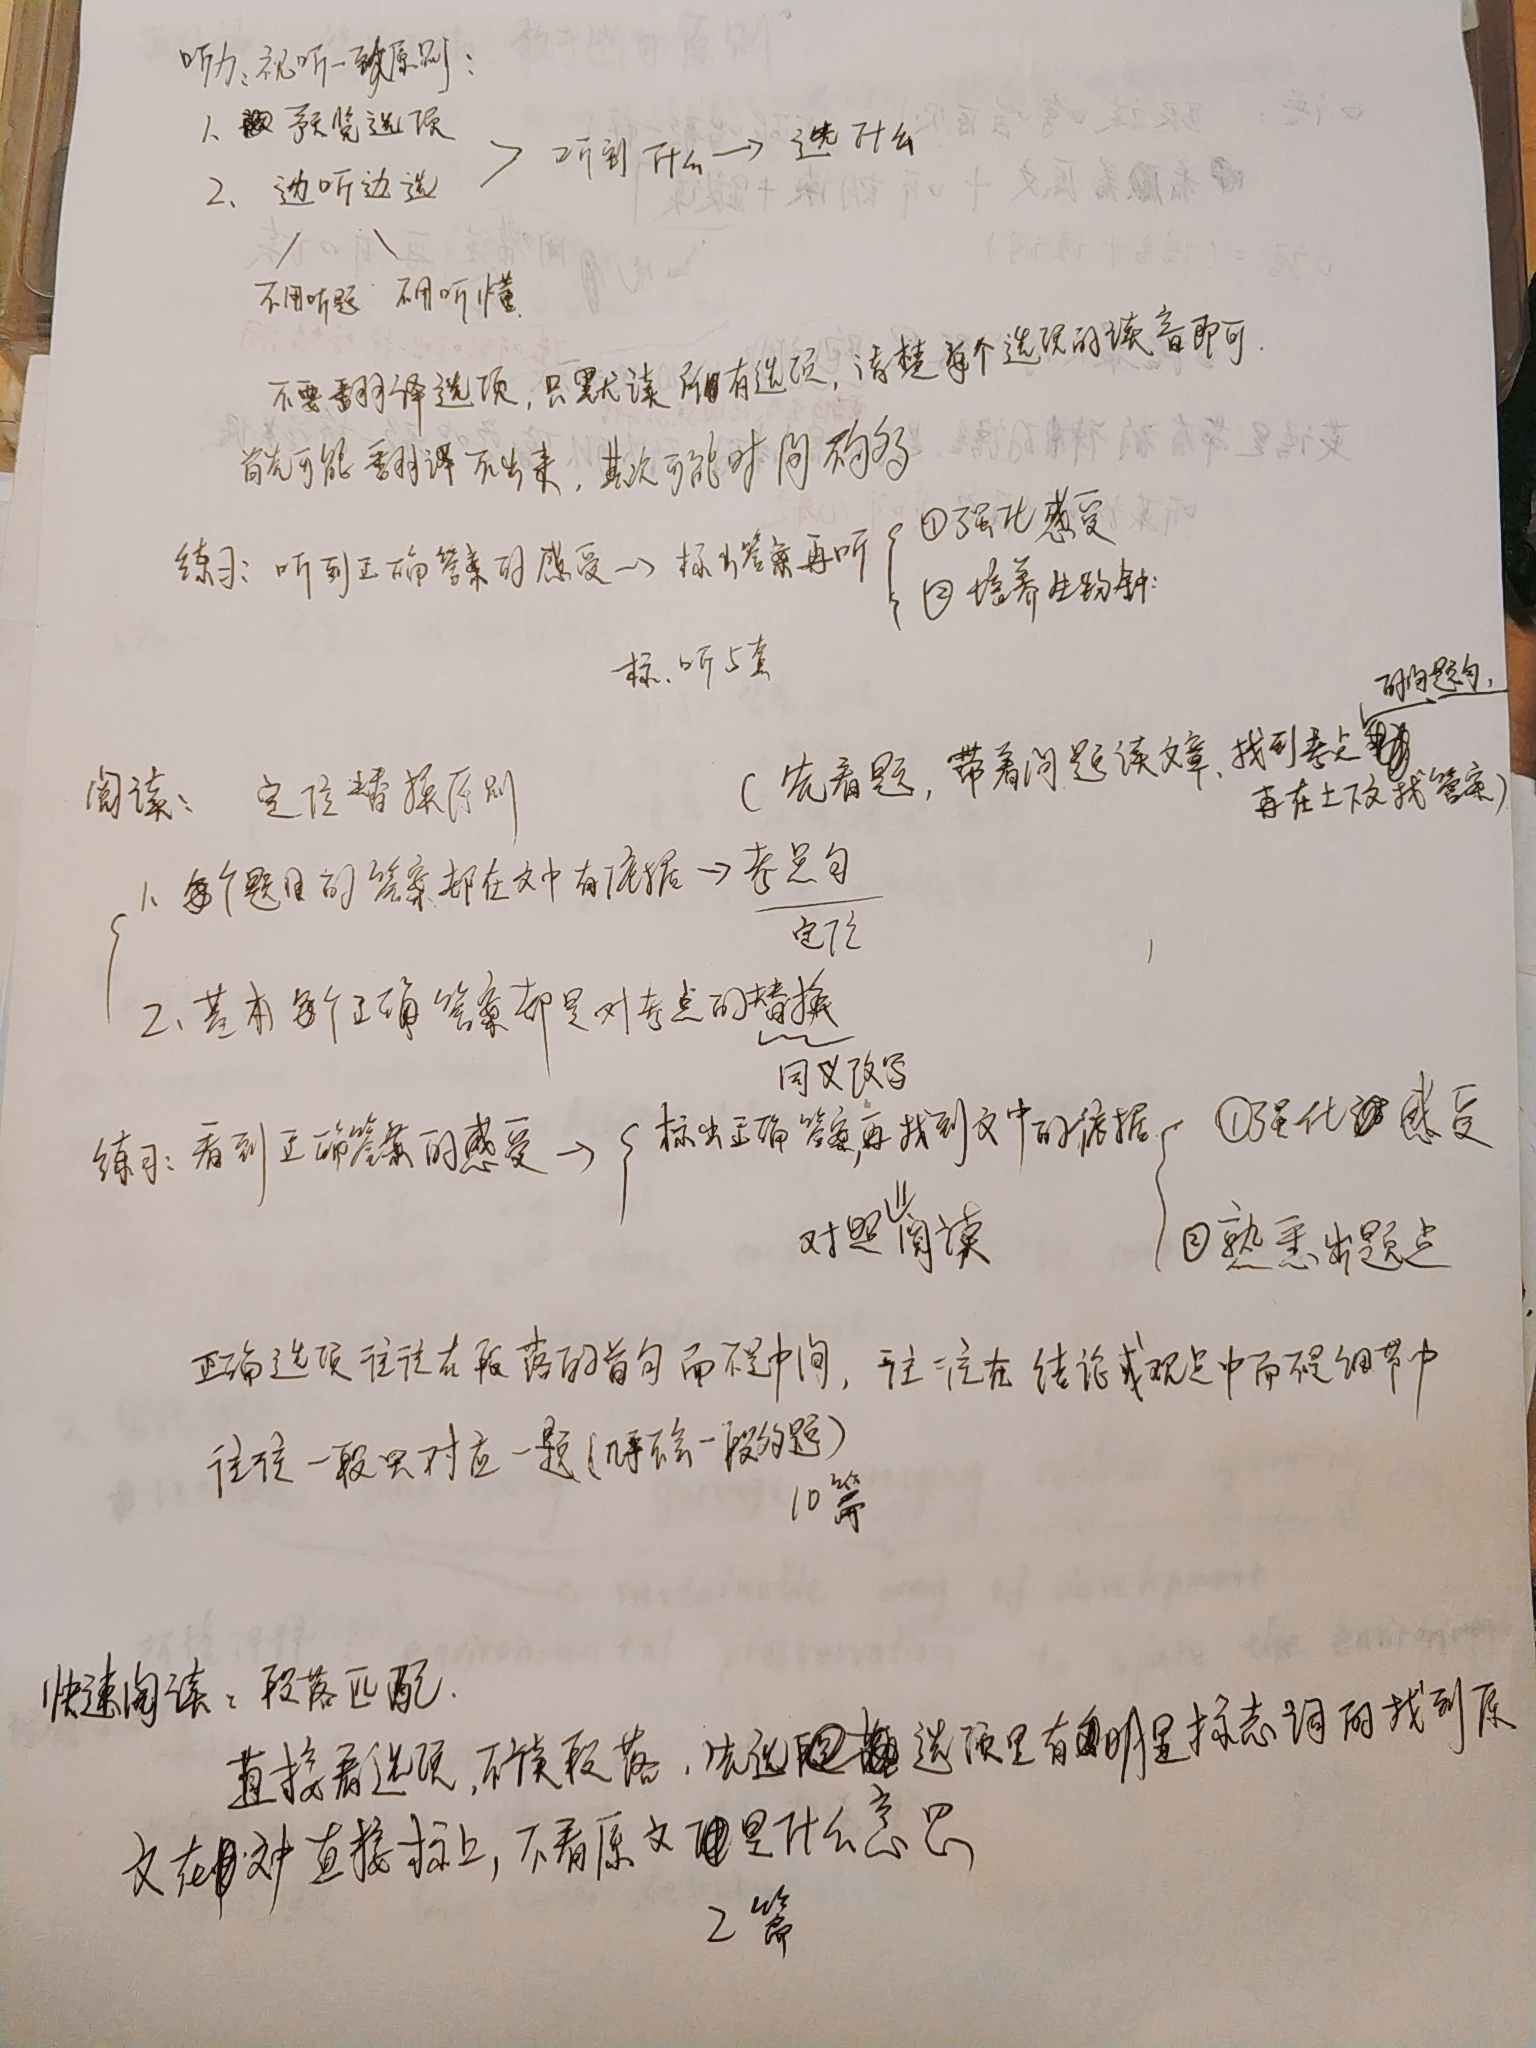 听力：视听一致原则：
1、预览选项
2、边听边选
> 听到什么→选什么
不用听题 不用听懂
不要翻译选项，只默读所有选项，清楚每个选项的读音即可.
首先可能翻译不出来，其次可能时间不够
练习：听到正确答案的感受→标出答案再听
①强化感受
②培养生物钟
标、听5套
阅读：定位替换原则
(先看题，带着问题读文章、找到考点的问题句，
再在上下文找答案)
1、每个题目的答案都在文中有依据→考点句
定位
2、基本每个正确答案都是对考点的替换
同义改写
练习：看到正确答案的感受→标出正确答案，再找到文中的依据
①强化感受
对照阅读
②熟悉出题点
正确选项往往在段落的首句而不是中间，往往在结论或观点中而不是细节中
往往一段只对应一题(几乎不会一段多题)
10篇
快速阅读：段落匹配.
直接看选项，不读段落，先选选项里有明显标志词的找到原
文在对直接标上，不看原文是什么意思
2篇